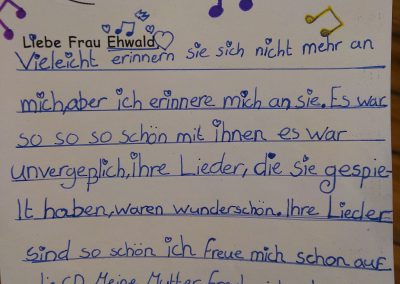 Liebe Frau Ehwald
Vieleicht erinnern sie sich nicht mehr an
mich, aber ich erinnere mich an sie. Es war
so so so schön mit ihnen es war
unvergeplich, ihre Lieder, die sie gespie-
lt haben, waren wunderschön. Ihre Lieder
sind so schön ich freue mich schon auf
CD Meine Mutter